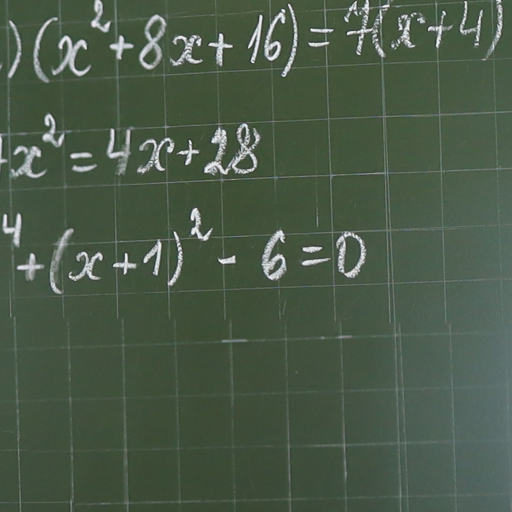 )(x²+8x+16)=7(x+4)
+x²=4x+28
⁴+(x+1)²-6=0